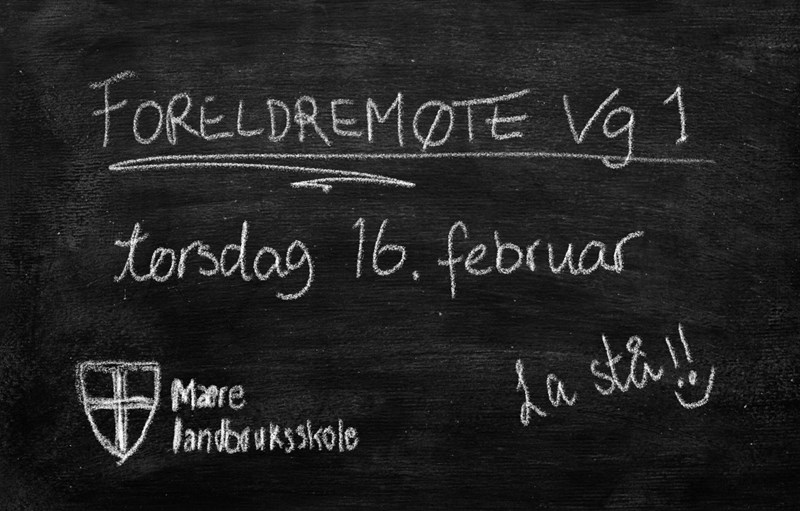 FORELDREMØTE Vg 1
torsdag 16. februar
La stå!!
Mære
landbruksskole